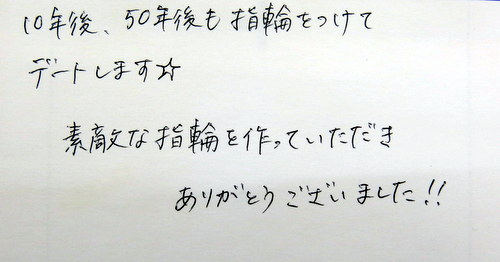 10年後、50年後も指輪をつけて
デートします☆
素敵な指輪を作っていただき
ありがとうございました!!